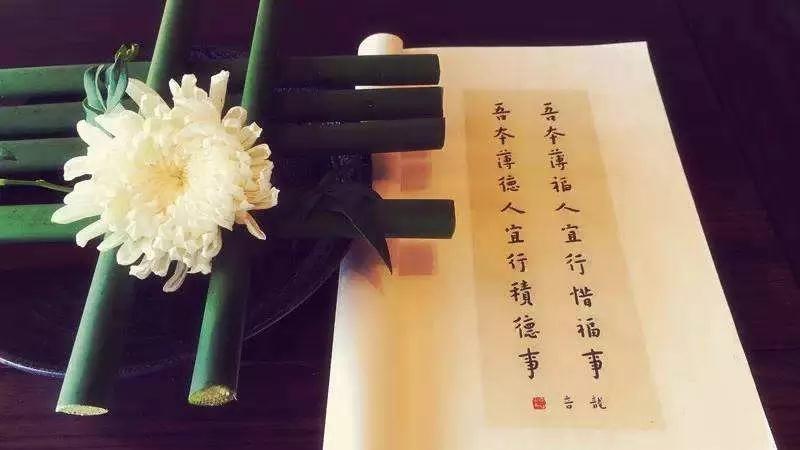 吾本薄福人宜行惜福事
吾本薄德人宜行積德事
龍音